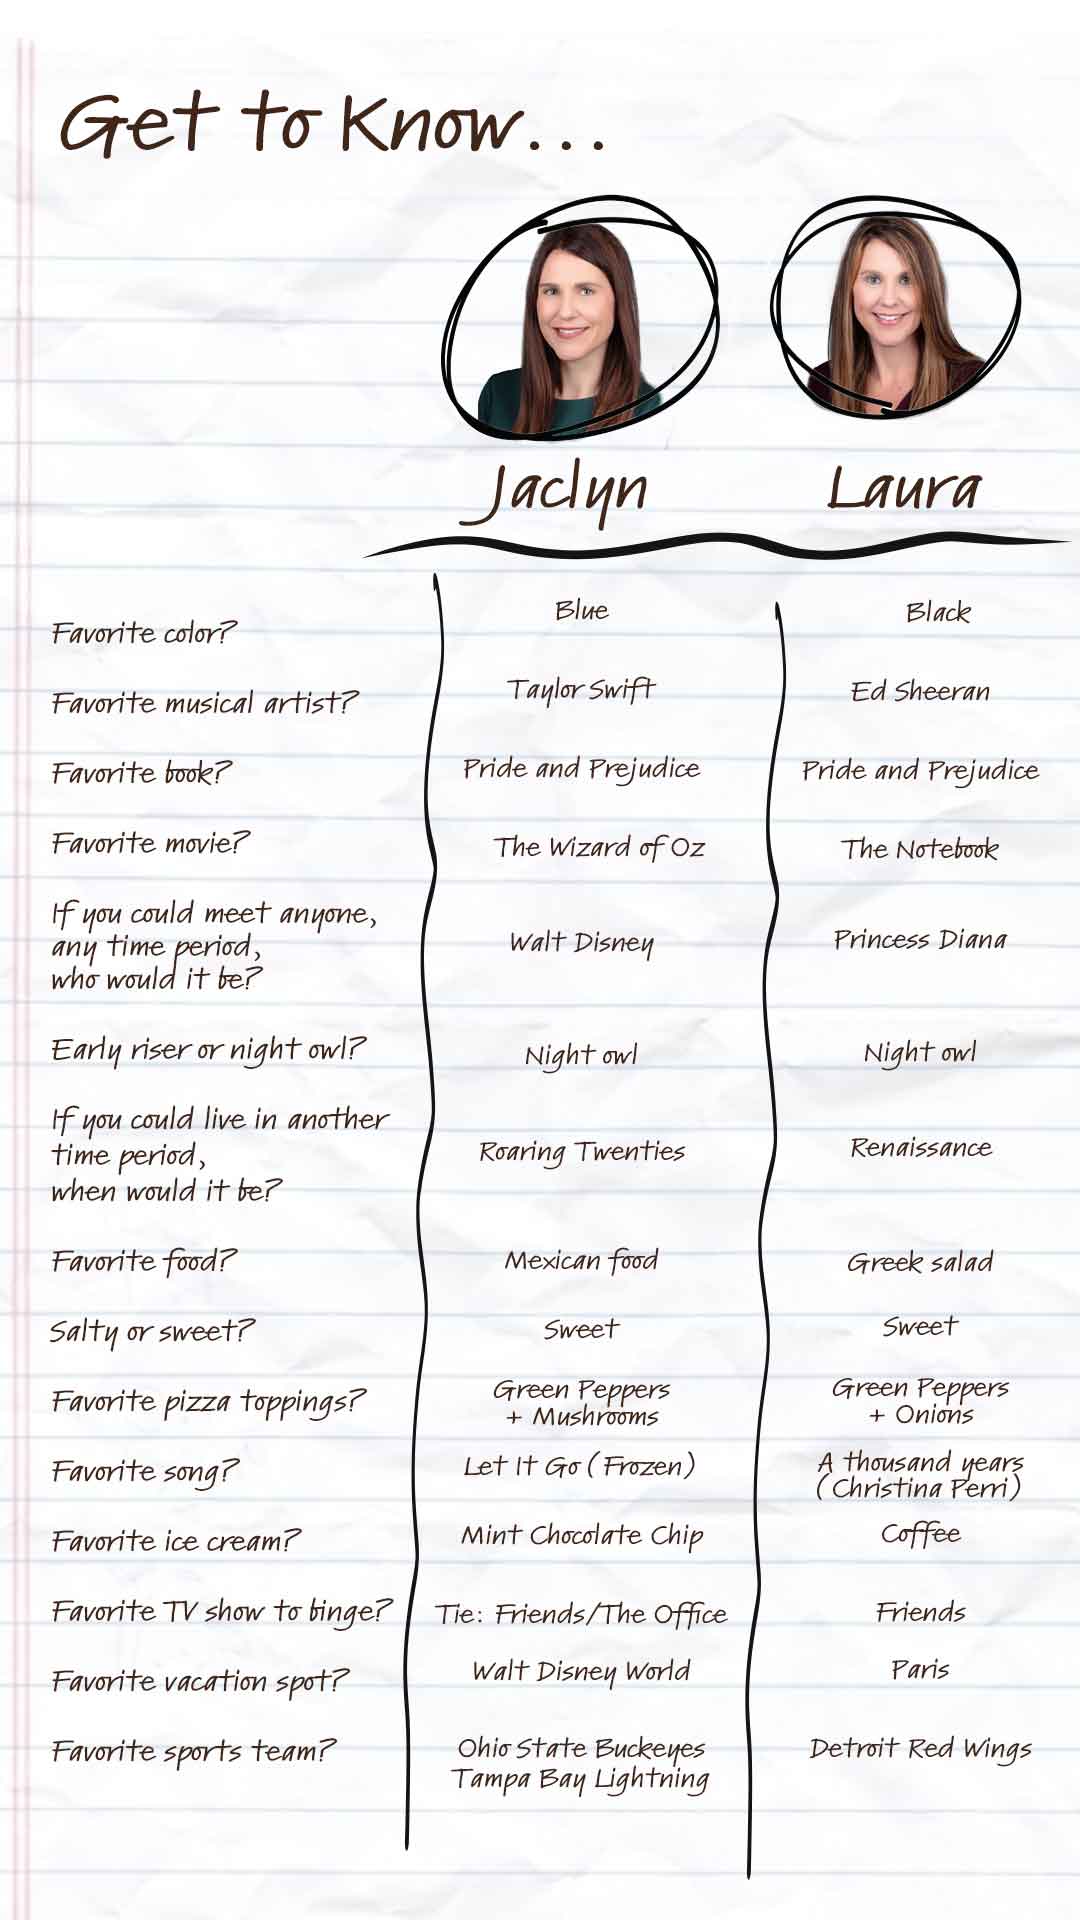 Get to Know...
Jaclyn Laura
Favorite color? Blue Black
Favorite musical artist? Taylor Swift Ed Sheeran
Favorite book? Pride and Prejudice Pride and Prejudice
Favorite movie? The Wizard of Oz The Notebook
If you could meet anyone,
any time period, Walt Disney Princess Diana
who would it be?
Early riser or night owl? Night owl Night owl
If you could live in another
time period, Roaring Twenties Renaissance
when would it be?
Favorite food? Mexican food Greek salad
Salty or sweet? Sweet Sweet
Favorite pizza toppings? Green Peppers Green Peppers
+ Mushrooms + Onions
Favorite song? Let It Go (Frozen) A thousand years
(Christina Perri)
Favorite ice cream? Mint Chocolate Chip Coffee
Favorite TV show to binge? Tie: Friends/The Office Friends
Favorite vacation spot? Walt Disney World Paris
Favorite sports team? Ohio State Buckeyes Detroit Red Wings
Tampa Bay Lightning